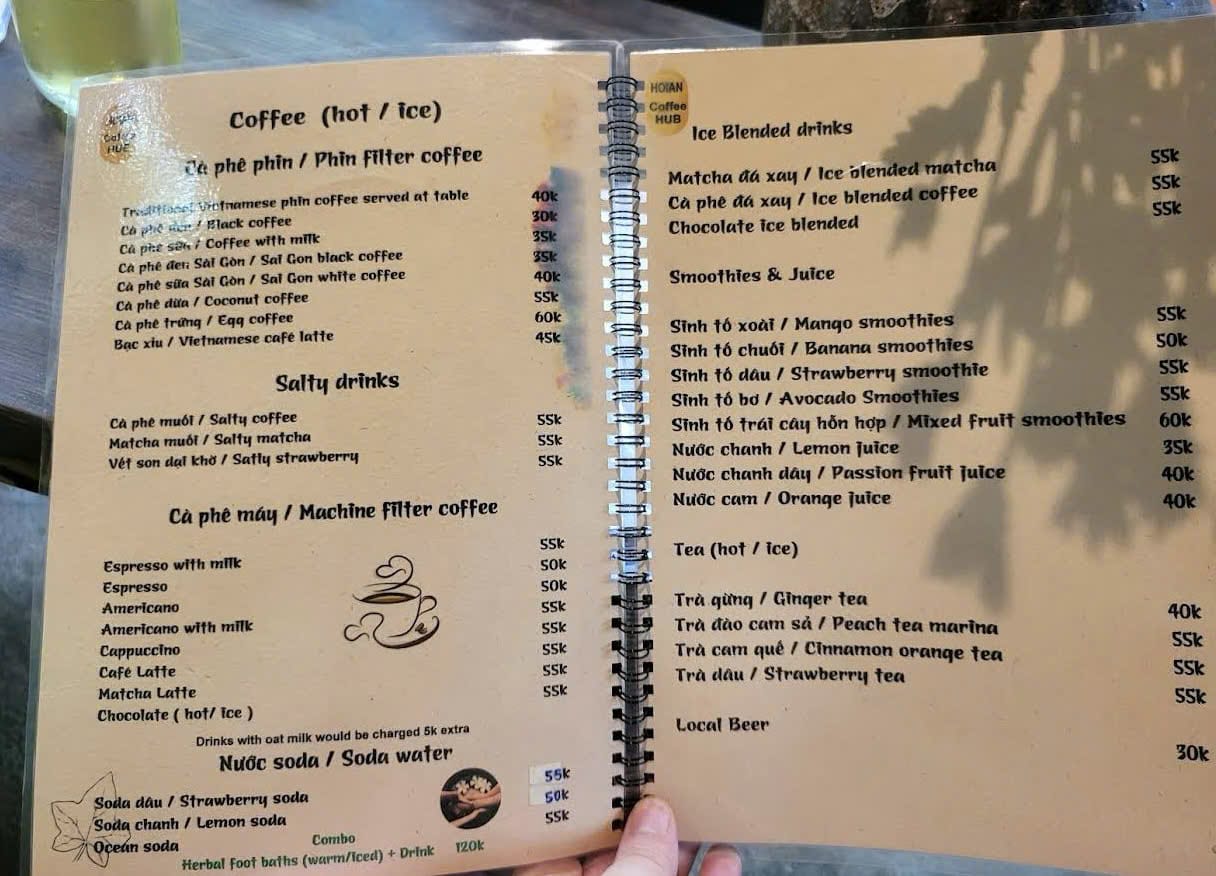 HOIAN
Coffee
HUB
Coffee (hot / ice)
Cà phê phin / Phin filter coffee
Traditional Vietnamese phin coffee served at table 40k
Cà phê đen / Black coffee 30k
Cà phê sữa / Coffee with milk 35k
Cà phê đen Sài Gòn / Sai Gon black coffee 35k
Cà phê sữa Sài Gòn / Sai Gon white coffee 40k
Cà phê dừa / Coconut coffee 55k
Cà phê trứng / Egg coffee 60k
Bạc xỉu / Vietnamese café latte 45k
Salty drinks
Cà phê muối / Salty coffee 55k
Matcha muối / Salty matcha 55k
Vét son dại khờ / Satly strawberry 55k
Cà phê máy / Machine filter coffee
Espresso with milk 55k
Espresso 50k
Americano 50k
Americano with milk 55k
Cappuccino 55k
Café Latte 55k
Matcha Latte 55k
Chocolate ( hot/ ice ) 55k
Drinks with oat milk would be charged 5k extra
Nước soda / Soda water
Soda dâu / Strawberry soda 55k
Soda chanh / Lemon soda 50k
Ocean soda 55k
Combo
Herbal foot baths (warm/iced) + Drink 120k
HOIAN
Coffee
HUB
Ice Blended drinks
Matcha đá xay / Ice blended matcha 55k
Cà phê đá xay / Ice blended coffee 55k
Chocolate ice blended 55k
Smoothies & Juice
Sinh tố xoài / Mango smoothies 55k
Sinh tố chuối / Banana smoothies 50k
Sinh tố dâu / Strawberry smoothie 55k
Sinh tố bơ / Avocado Smoothies 55k
Sinh tố trái cây hỗn hợp / Mixed fruit smoothies 60k
Nước chanh / Lemon juice 35k
Nước chanh dây / Passion fruit juice 40k
Nước cam / Orange juice 40k
Tea (hot / ice)
Trà gừng / Ginger tea 40k
Trà đào cam sả / Peach tea marina 55k
Trà cam quế / Cinnamon orange tea 55k
Trà dâu / Strawberry tea 55k
Local Beer 30k